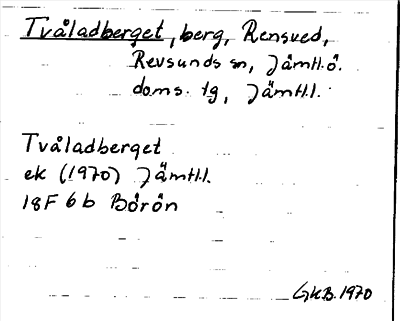 Tvåladberget, berg, Rensved,
Revsunds sn, Jämtl.ö.
doms. tg, Jämtl.l.
Tvåladberget
ek (1970) Jämtl.l.
18F 6b Börön
GKB.1970